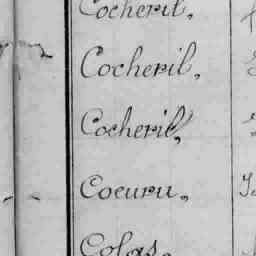 Cocheril,
Cocheril,
Cocheril,
Cocuru,
Colas,